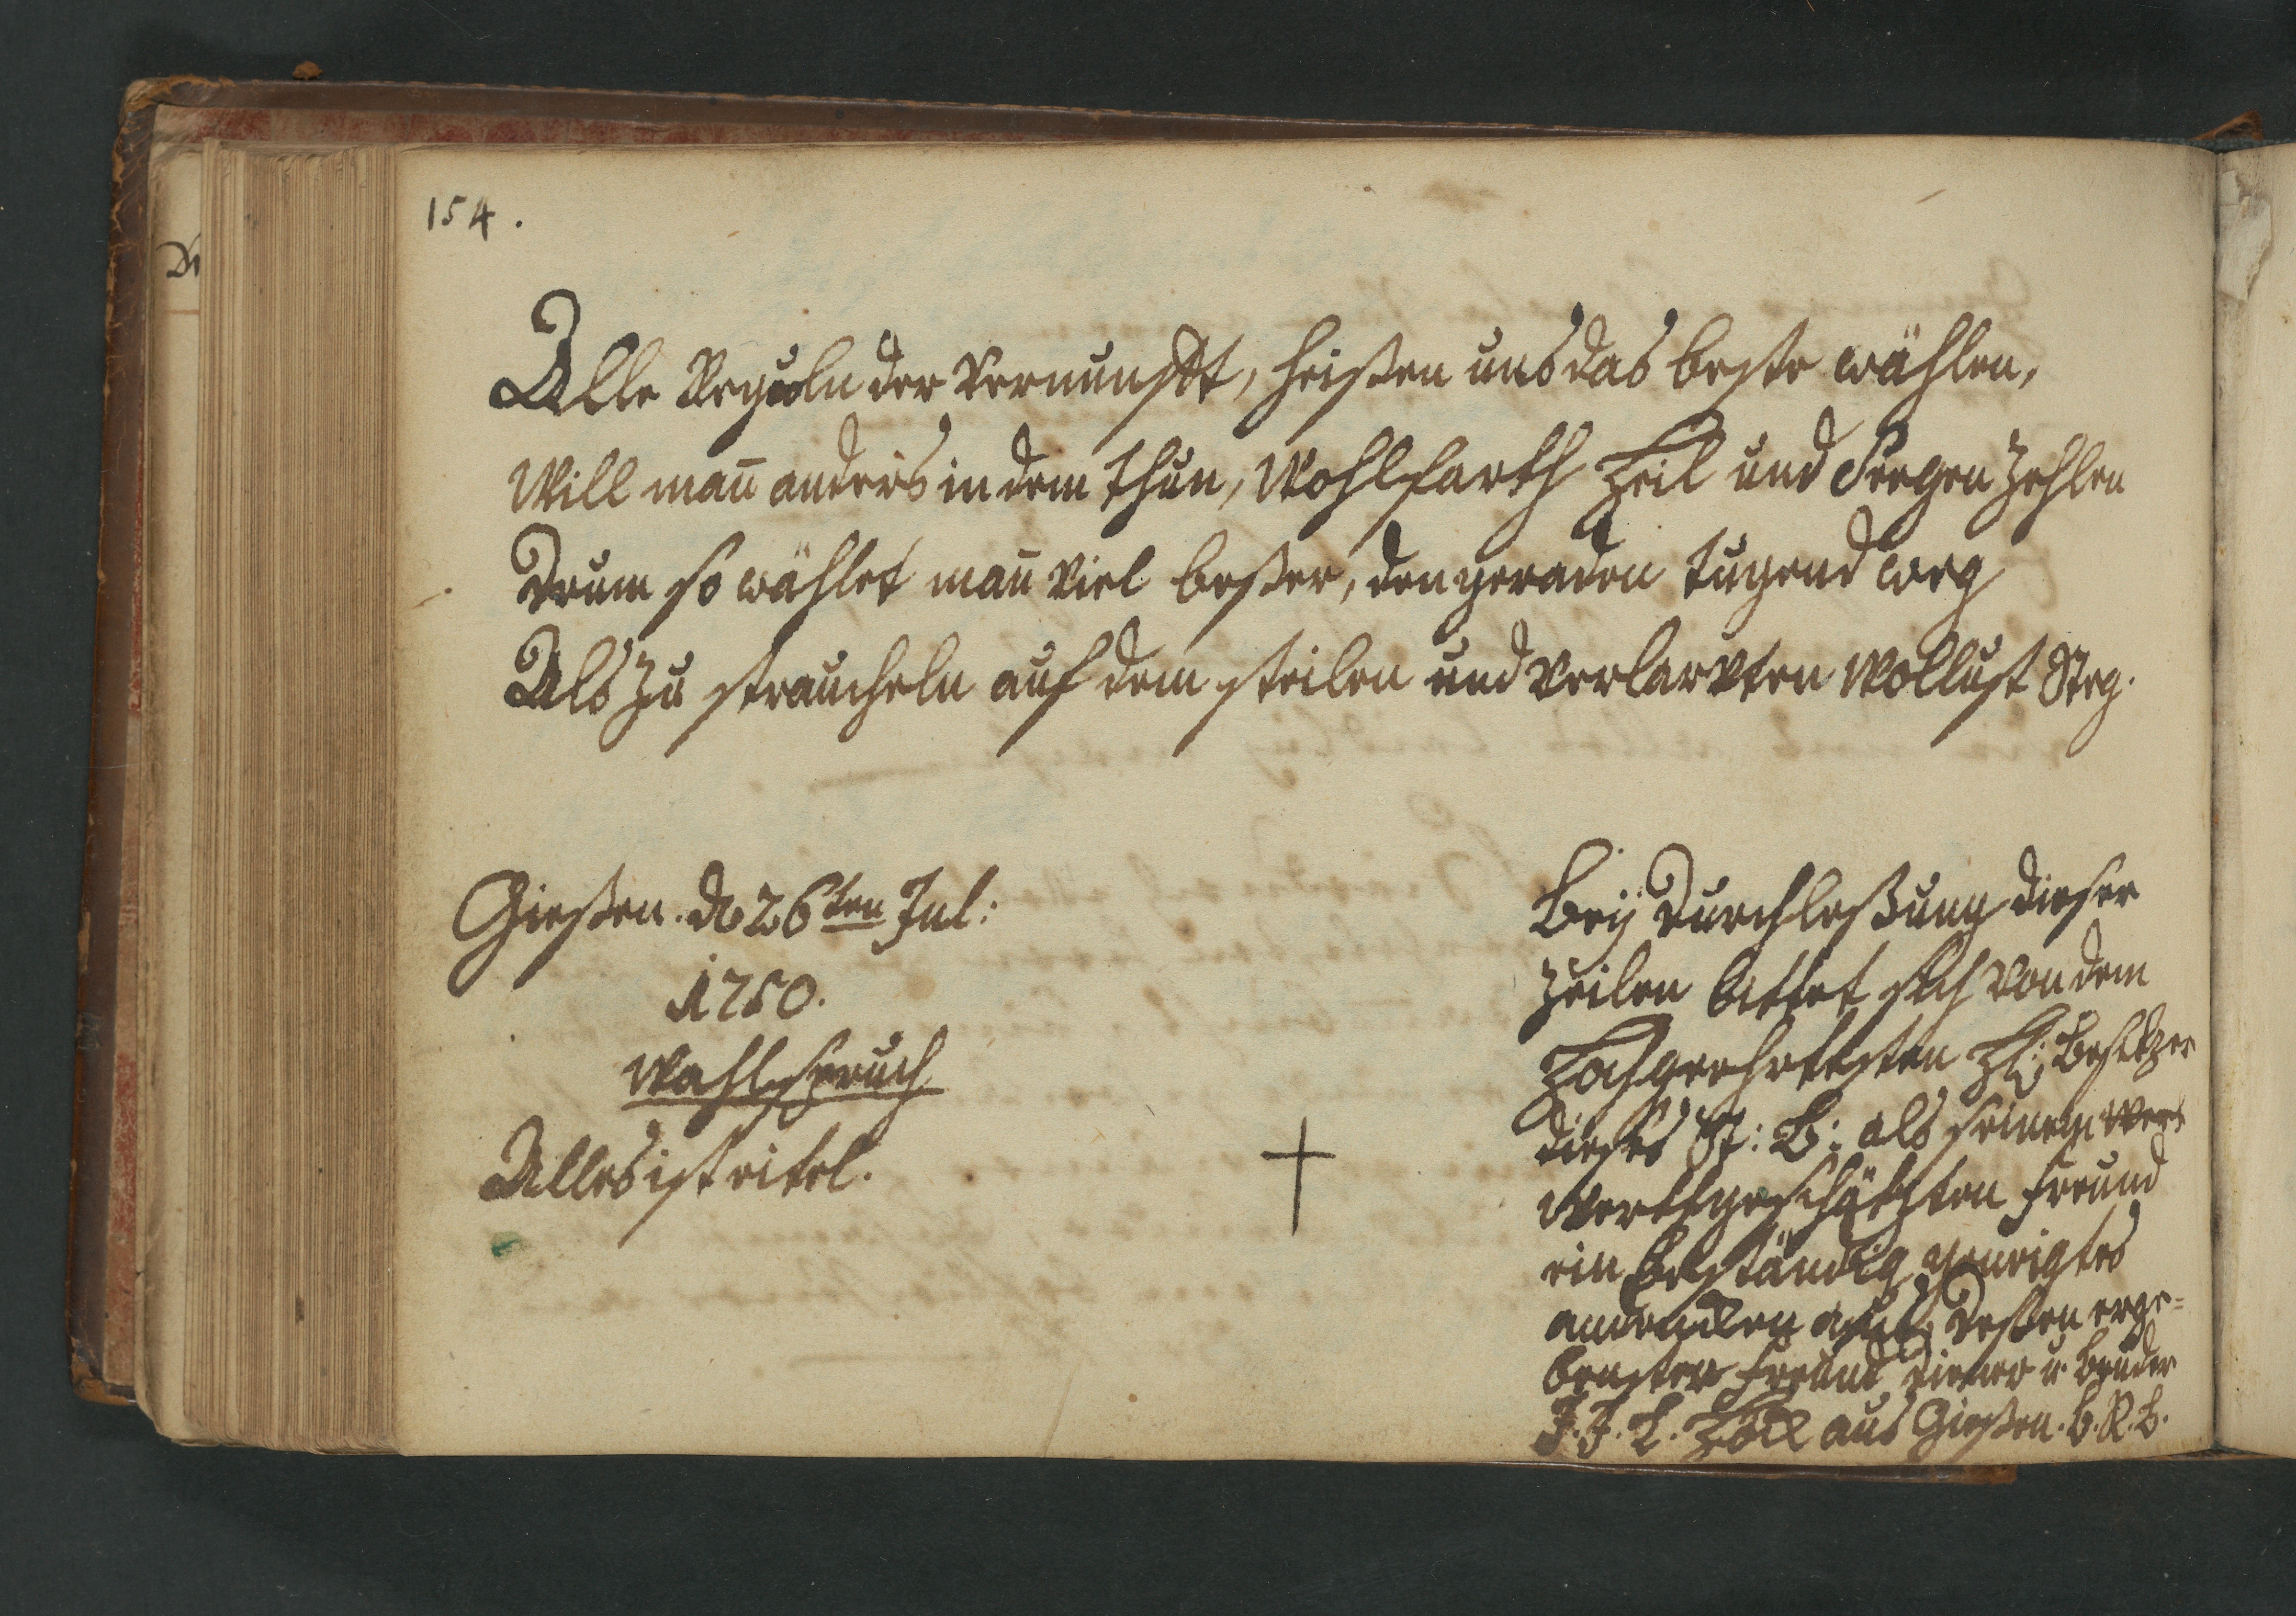 154.
Alle Reguln der Vernunfft, heißen uns das beste wählen,
Will man̄ anders in dem thun, Wohlfarth Heil und Seegen zehlen
Drum so wählet man̄ viel beßer, den geraden tugend weg
Als zu straucheln auf dem steilen und verlarvten Wollust Steg.
Gießen. d 26ten Jul:
1750.
Wahlspruch
Alles ist eitel.
Beÿ Durchleßung dieser
Zeilen bittet sich von dem
Hochgeehrtesten H: Besitzer
dieses St: B: als seinem
Werthgeschätzten Freund
ein beständig geneigtes
andencken aus, Deßen erge-
benster Freund Diener u. bruder
J. J. L. aus Gießen. b. R. b.